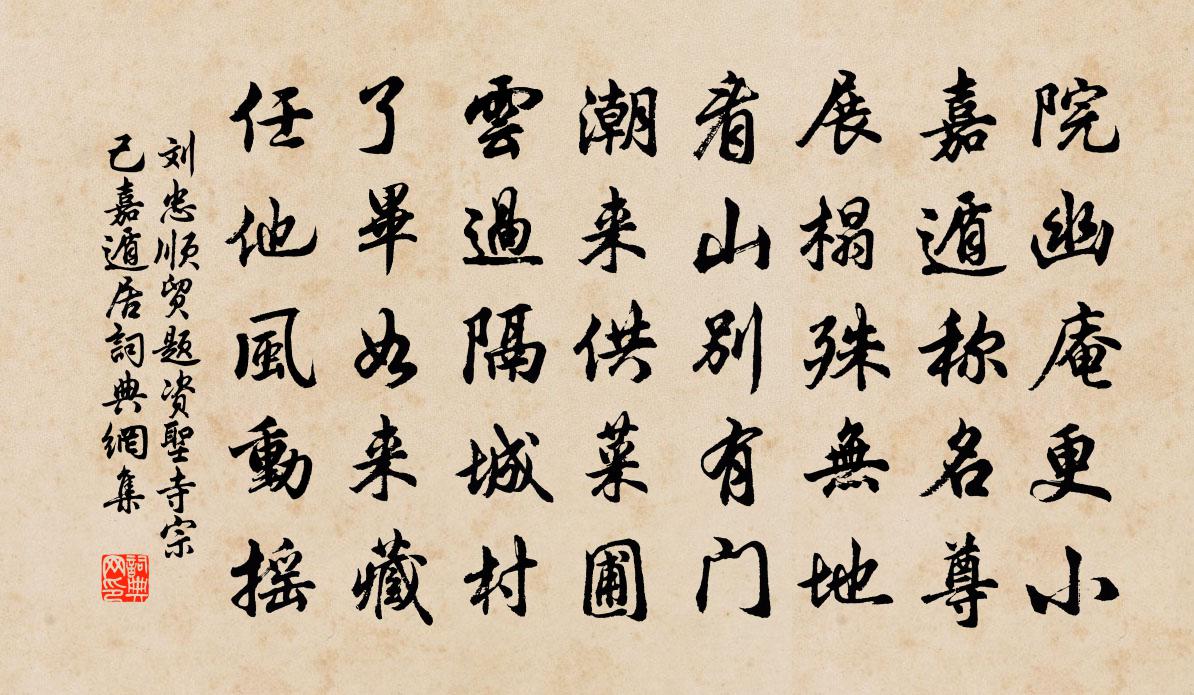 院幽庵更小
嘉遁称名尊
展榻殊無地
看山别有门
潮来供菜圃
雲過隔城村
了畢如来藏
任他風動摇
刘忠顺贸题资聖寺宗
己嘉遁居詞典網集
詞典
网印